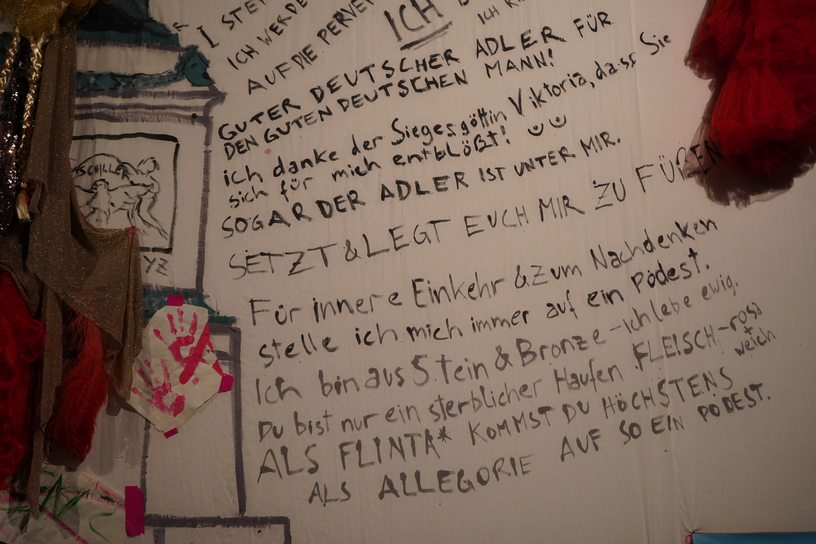 ICH
ICH WERDE
AUF DIE
GUTER DEUTSCHER ADLER FÜR
DEN GUTEN DEUTSCHEN MANN!
ich danke der Siegesgöttin Viktoria, dass Sie
sich für mich entblößt!
SOGAR DER ADLER IST UNTER MIR.
SETZT & LEGT EUCH MIR ZU FÜßEN
Für innere Einkehr & zum Nachdenken
stelle ich mich immer auf ein Podest.
Ich bin aus Stein & Bronze - ich lebe ewig.
Du bist nur ein sterblicher Haufen FLEISCH - rosa + weich
ALS FLINTA* KOMMST DU HÖCHSTENS
ALS ALLEGORIE AUF SO EIN PODEST.
SCHILLER
YZ